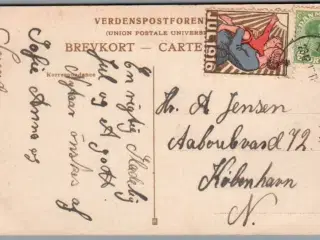 VERDENSPOSTFORENI
(UNION POSTALE UNIVERS
BREVKORT - CARTE
Korrespondance
En rigtig Glædelig
Jul og et godt
Nytaar ønskes af
Sofie Anna og
Svend
JUL 1919
Hr. A Jensen
Aaboulevard 72
København
N.